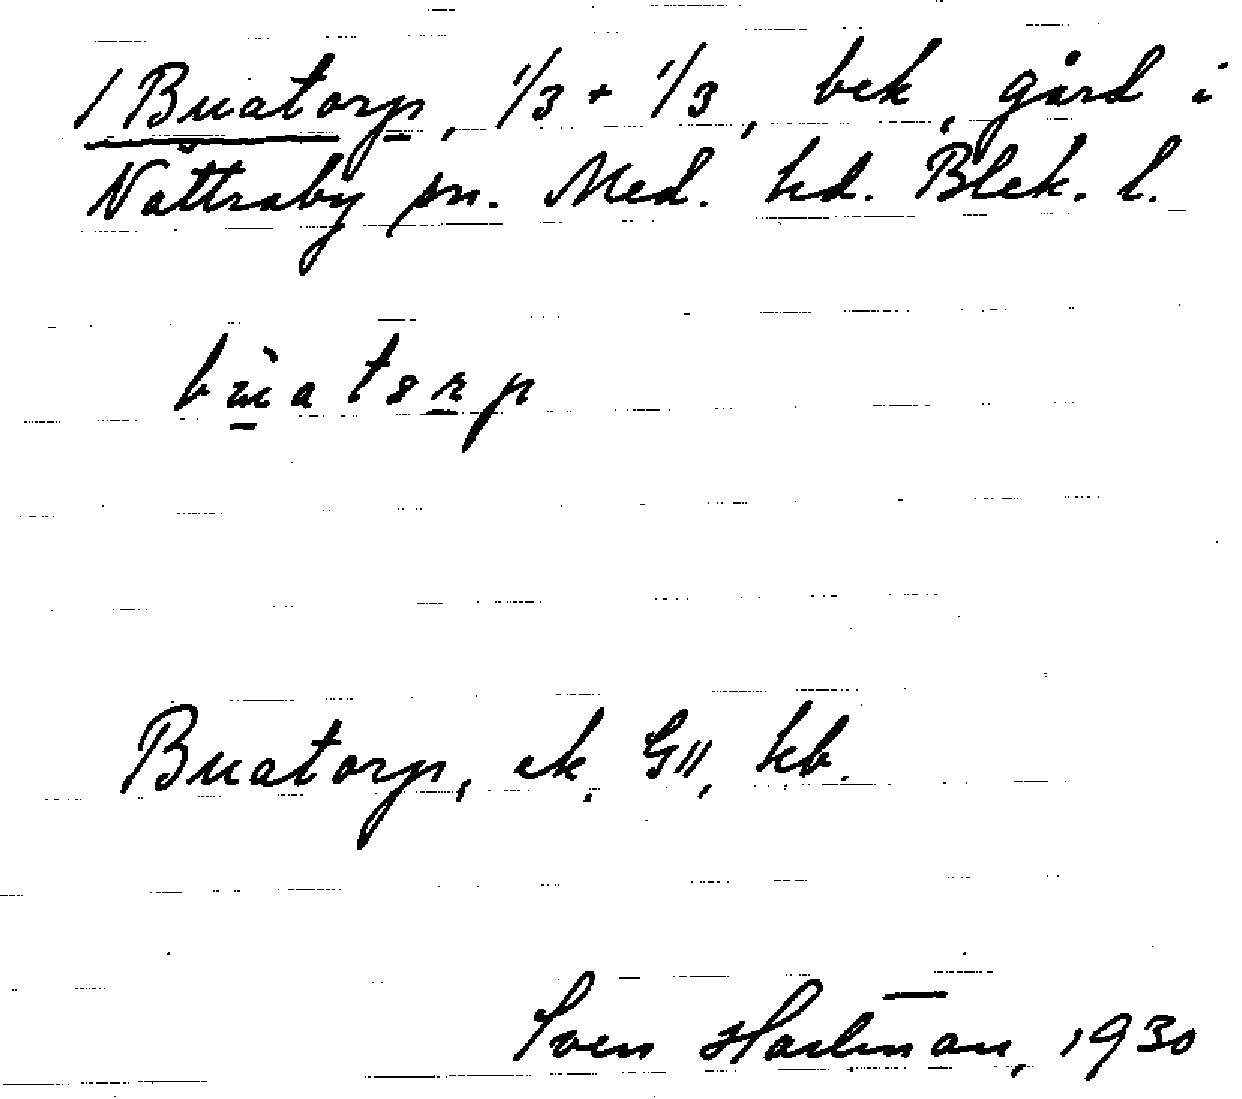 1 Buatorp, 1/3 + 1/3, bek, gård i
Nättraby sn. Med. hd. Blek. l.
Buatorp, ek, GII, kb.
Sven Hartman, 1930